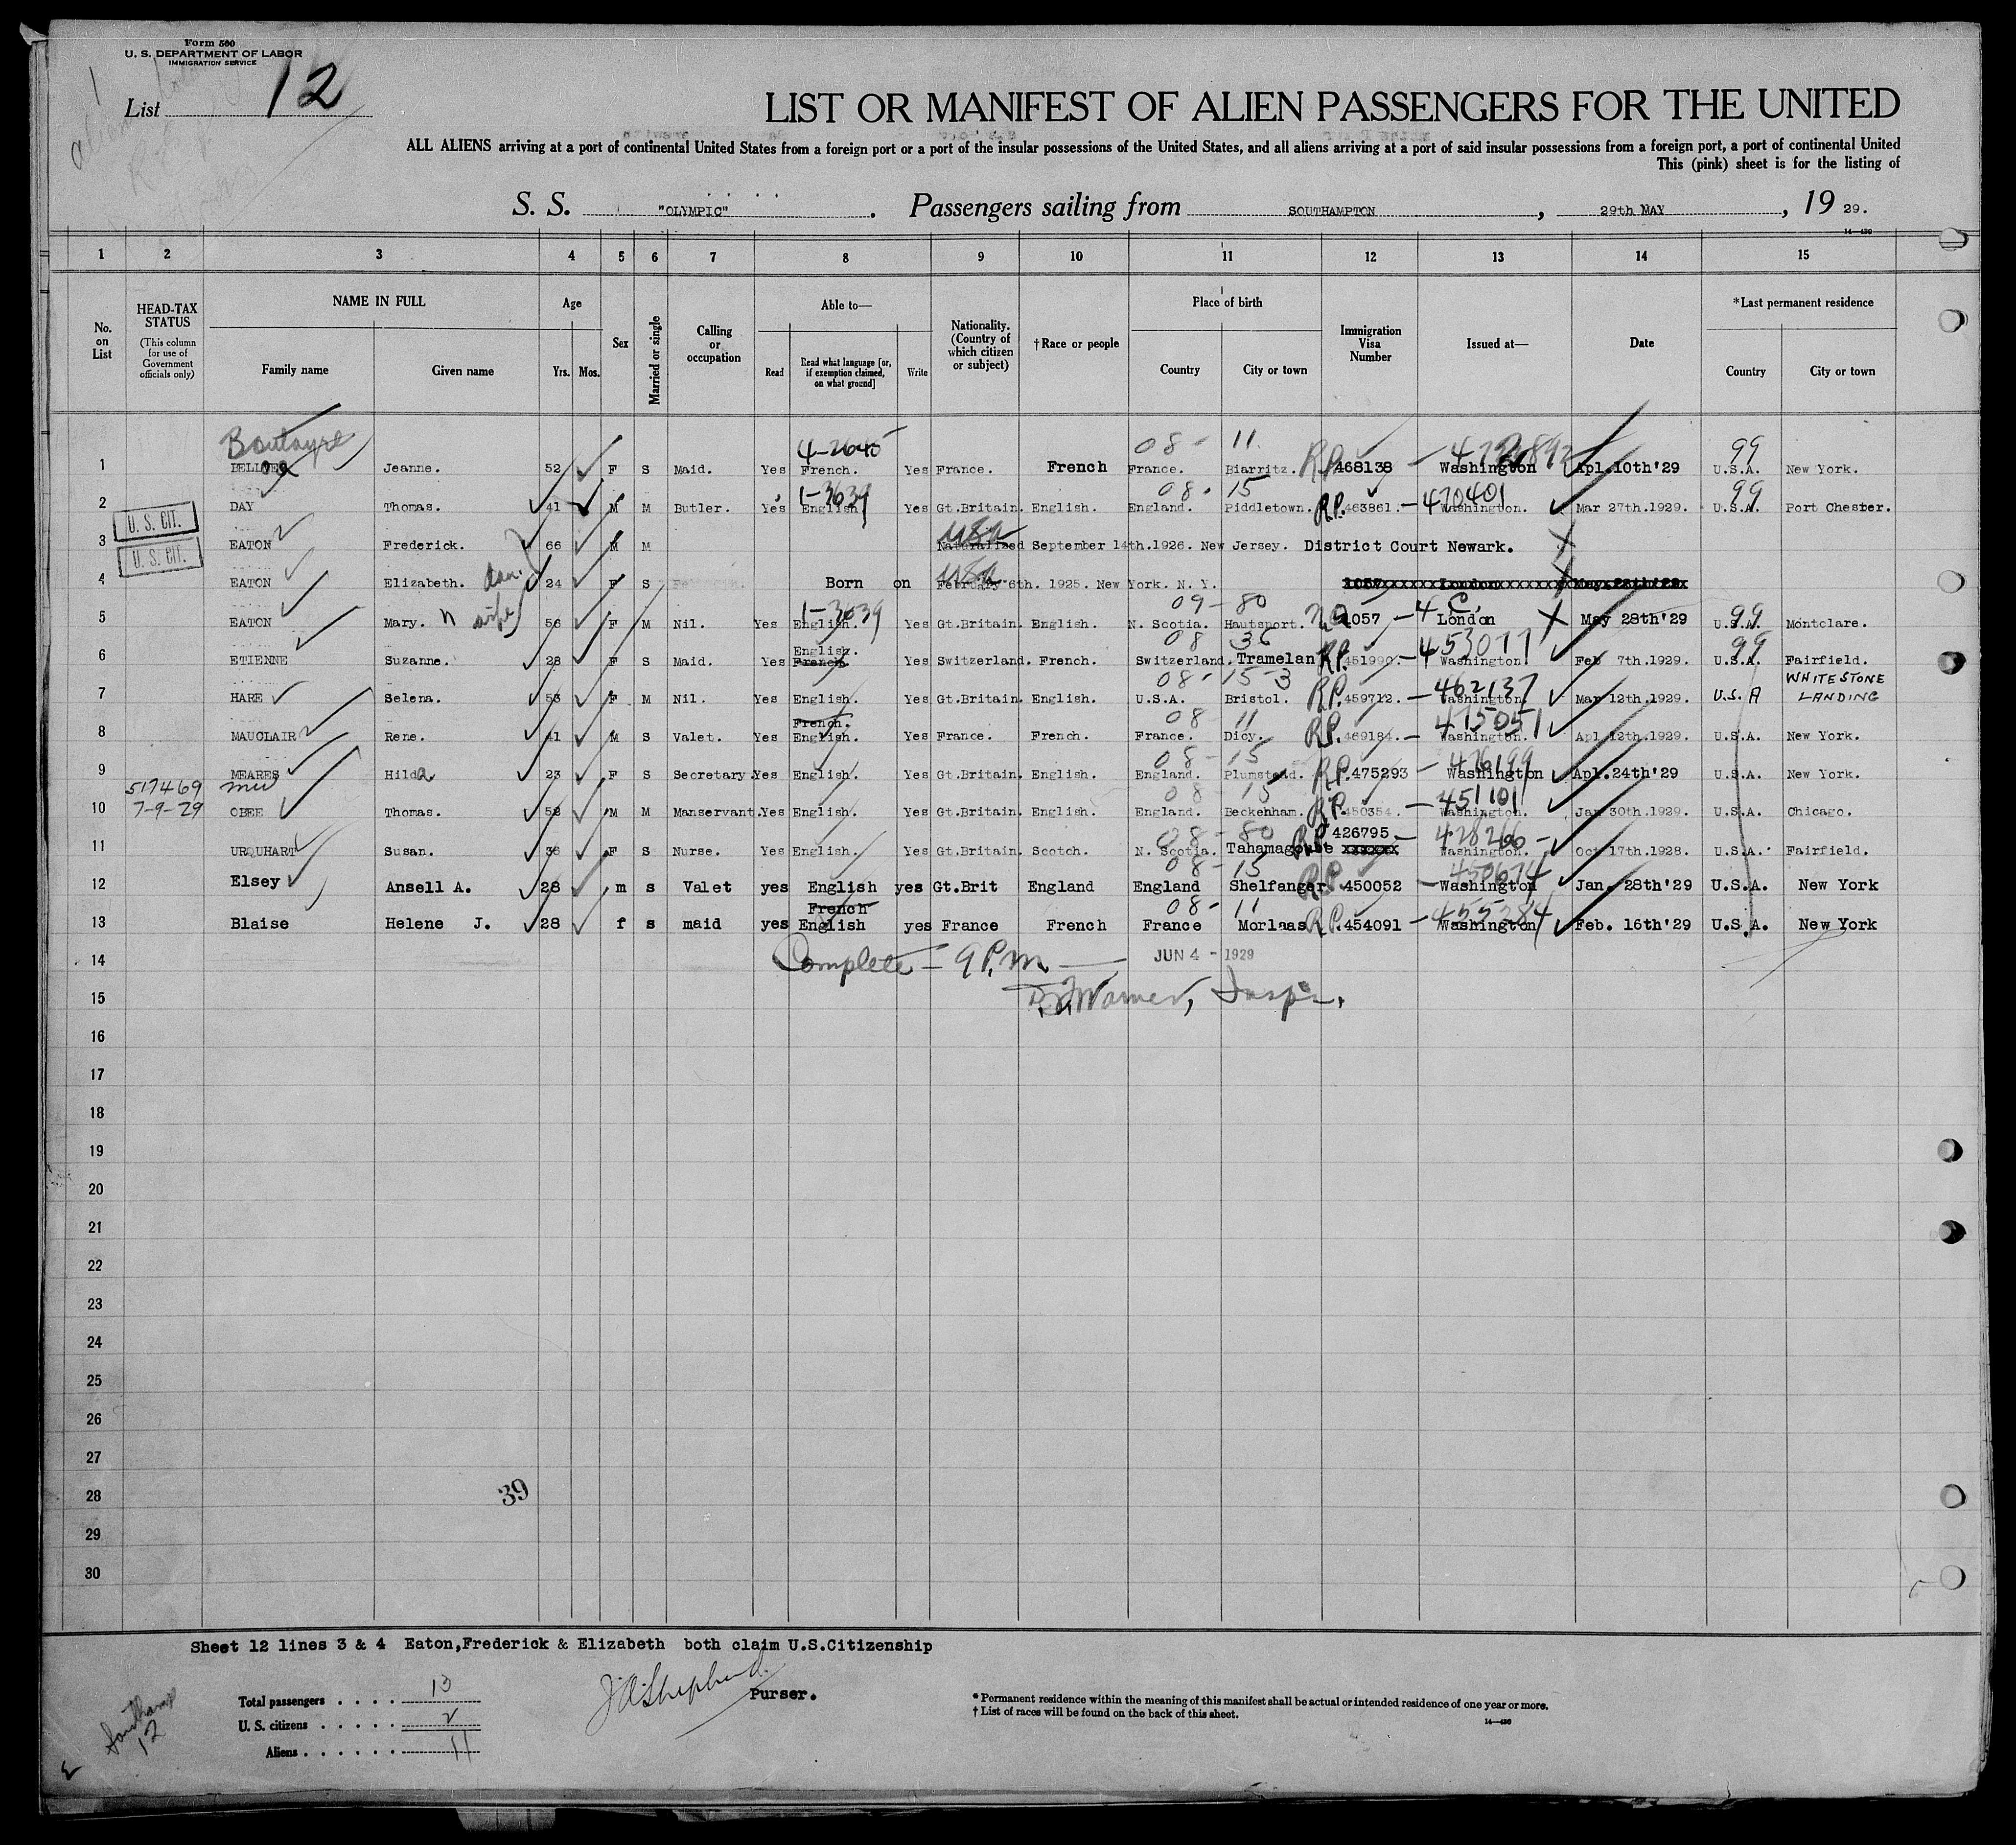 Form 500
U. S. DEPARTMENT OF LABOR
IMMIGRATION SERVICE
List 12
LIST OR MANIFEST OF ALIEN PASSENGERS FOR THE UNITED
ALL ALIENS arriving at a port of continental United States from a foreign port or a port of the insular possessions of the United States, and all aliens arriving at a port of said insular possessions from a foreign port, a port of continental United
This (pink) sheet is for the listing of
S. S. "OLYMPIC". Passengers sailing from SOUTHAMPTON, 29th MAY, 19 29.
14—430
1 2 3 4 5 6 7 8 9 10 11 12 13 14 15
No. on List
HEAD-TAX STATUS (This column for use of Government officials only)
NAME IN FULL Family name Given name
Age Yrs. Mos.
Sex
Married or single
Calling or occupation
Able to— Read Read what language [or, if exemption claimed, on what ground] Write
Nationality. (Country of which citizen or subject)
†Race or people
Place of birth Country City or town
Immigration Visa Number
Issued at—
Date
*Last permanent residence Country City or town
4-2645 08- 11. 99
1 Jeanne. 52 F S Maid. Yes French. Yes France. French France. Biarritz. R.P. 468138 — Washington Apl.10th'29 U.S.A. New York.
1-3639 08- 15 470401 99
2 DAY Thomas. 41 M M Butler. Yes English Yes Gt.Britain. English. England. Piddletown. R.P. 463861. — Washington. Mar 27th.1929. U.S.A. Port Chester.
U. S. CIT.
USA
3 EATON Frederick. 66 M M Naturalized September 14th.1926. New Jersey. District Court Newark.
U. S. CIT.
USA
4 EATON Elizabeth. dau. 24 F S Born on February 6th. 1925. New York. N. Y. 1057xxxxxxLondonxxxxxxxxMay.28th'29
1-3639 09-80 4 C. 99
5 EATON Mary. wife 56 F M Nil. Yes English. Yes Gt.Britain. English. N. Scotia. Hautsport. 1057 — London May 28th'29 U.S.A. Montclare.
English. 08 36 453077 99
6 ETIENNE Suzanne. 28 F S Maid. Yes French. Yes Switzerland. French. Switzerland. Tramelan R.P. 451990. — Washington. Feb 7th.1929. U.S.A. Fairfield.
08-15-3 462137 WHITESTONE
7 HARE Selena. 53 F M Nil. Yes English. Yes Gt.Britain. English. U.S.A. Bristol. R.P. 459712. — Washington. Mar 12th.1929. U.S.A LANDING
French. 08 11 475051
8 MAUCLAIR Rene. 41 M S Valet. Yes English. Yes France. French. France. Dicy. R.P. 469184. — Washington. Apl 12th.1929. U.S.A. New York.
08-15 476199
9 MEARES Hilda 23 F S Secretary. Yes English. Yes Gt.Britain. English. England. Plumstead. R.P. 475293 — Washington Apl.24th'29 U.S.A. New York.
517469 08 15 451101
10 7-9-29 OBEE Thomas. 52 M M Manservant. Yes English. Yes Gt.Britain. English. England. Beckenham. R.P. 450354. — Washington. Jan 30th.1929. U.S.A. Chicago.
08-80 426795 — 428266
11 URQUHART Susan. 36 F S Nurse. Yes English. Yes Gt.Britain. Scotch. N. Scotia. R.P. xxxxxx Washington. Oct 17th.1928. U.S.A. Fairfield.
08-15 450674
12 Elsey Ansell A. 28 m s Valet yes English yes Gt.Brit England England Shelfanger R.P. 450052 — Washington Jan. 28th'29 U.S.A. New York
French 08- 11 455284
13 Blaise Helene J. 28 f s maid yes English yes France French France Morlaas R.P. 454091 — Washington Feb. 16th'29 U.S.A. New York
14 Complete — 9 P.M. — JUN 4 - 1929
15 Warner, Inspr.
16
17
18
19
20
21
22
23
24
25
26
27
28 39
29
30
Sheet 12 lines 3 & 4 Eaton,Frederick & Elizabeth both claim U.S.Citizenship
Total passengers . . . . 13
U. S. citizens . . . . . 2
Aliens . . . . . . 11
J A Shepherd.
Purser.
* Permanent residence within the meaning of this manifest shall be actual or intended residence of one year or more.
† List of races will be found on the back of this sheet.
14—430
Southamp
12